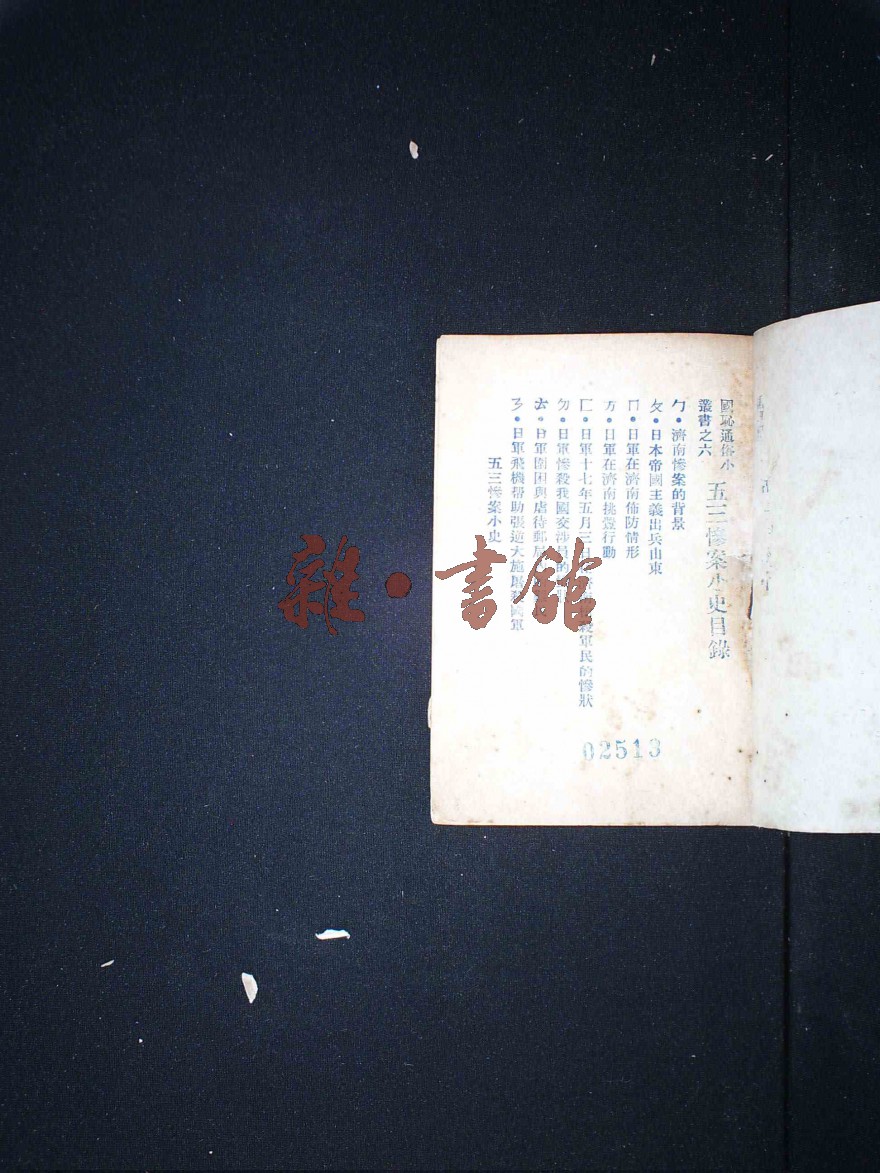 國恥通俗小
叢書之六
五三慘案小史目錄
ㄅ・濟南慘案的背景
ㄆ・日本帝國主義出兵山東
ㄇ・日軍在濟南佈防情形
ㄪ・日軍在濟南挑釁行動
ㄈ・日軍十七年五月三日 軍民的慘狀
ㄉ・日軍慘殺我國交涉員的
ㄊ・日軍圍困與虐待郵局
ㄋ・日軍飛機幫助張逆大施 國軍
五三慘案小史
02513
雜・書館